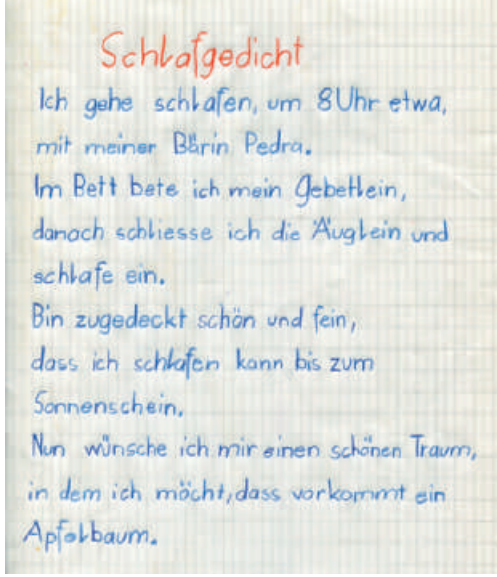 Schlafgedicht
Ich gehe schlafen, um 8 Uhr etwa,
mit meiner Bärin Pedra.
Im Bett bete ich mein Gebetlein,
danach schliesse ich die Äuglein und
schlafe ein.
Bin zugedeckt schön und fein,
dass ich schlafen kann bis zum
Sonnenschein.
Nun wünsche ich mir einen schönen Traum,
in dem ich möcht, dass vorkommt ein
Apfelbaum.